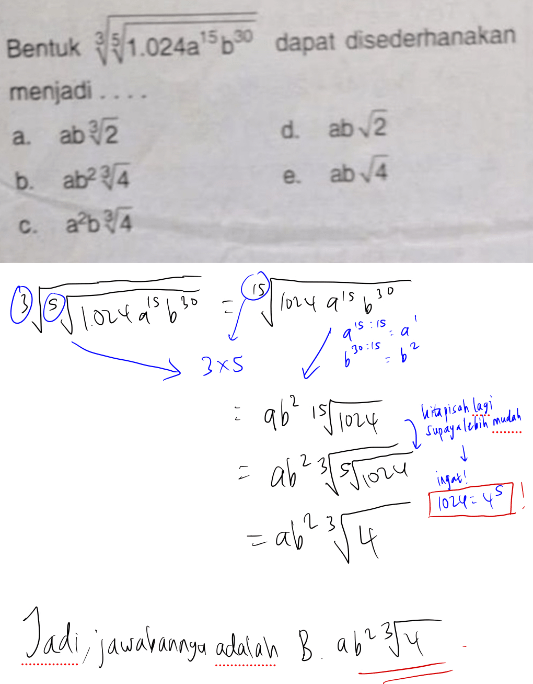 Bentuk ∛⁵√1.024a¹⁵b³⁰ dapat disederhanakan
menjadi . . . .
a. ab ∛2
b. ab² ∛4
c. a²b ∛4
d. ab √2
e. ab √4
³√⁵√1.024 a¹⁵ b³⁰ = ¹⁵√1024 a¹⁵ b³⁰
3 x 5
a¹⁵:¹⁵ = a¹
b³⁰:¹⁵ = b²
= ab² ¹⁵√1024
kita pisah lagi
supaya lebih mudah
= ab² ³√⁵√1024
ingat!
1024 = 4⁵ !
= ab² ³√4
Jadi, jawabannya adalah B. ab² ³√4 .